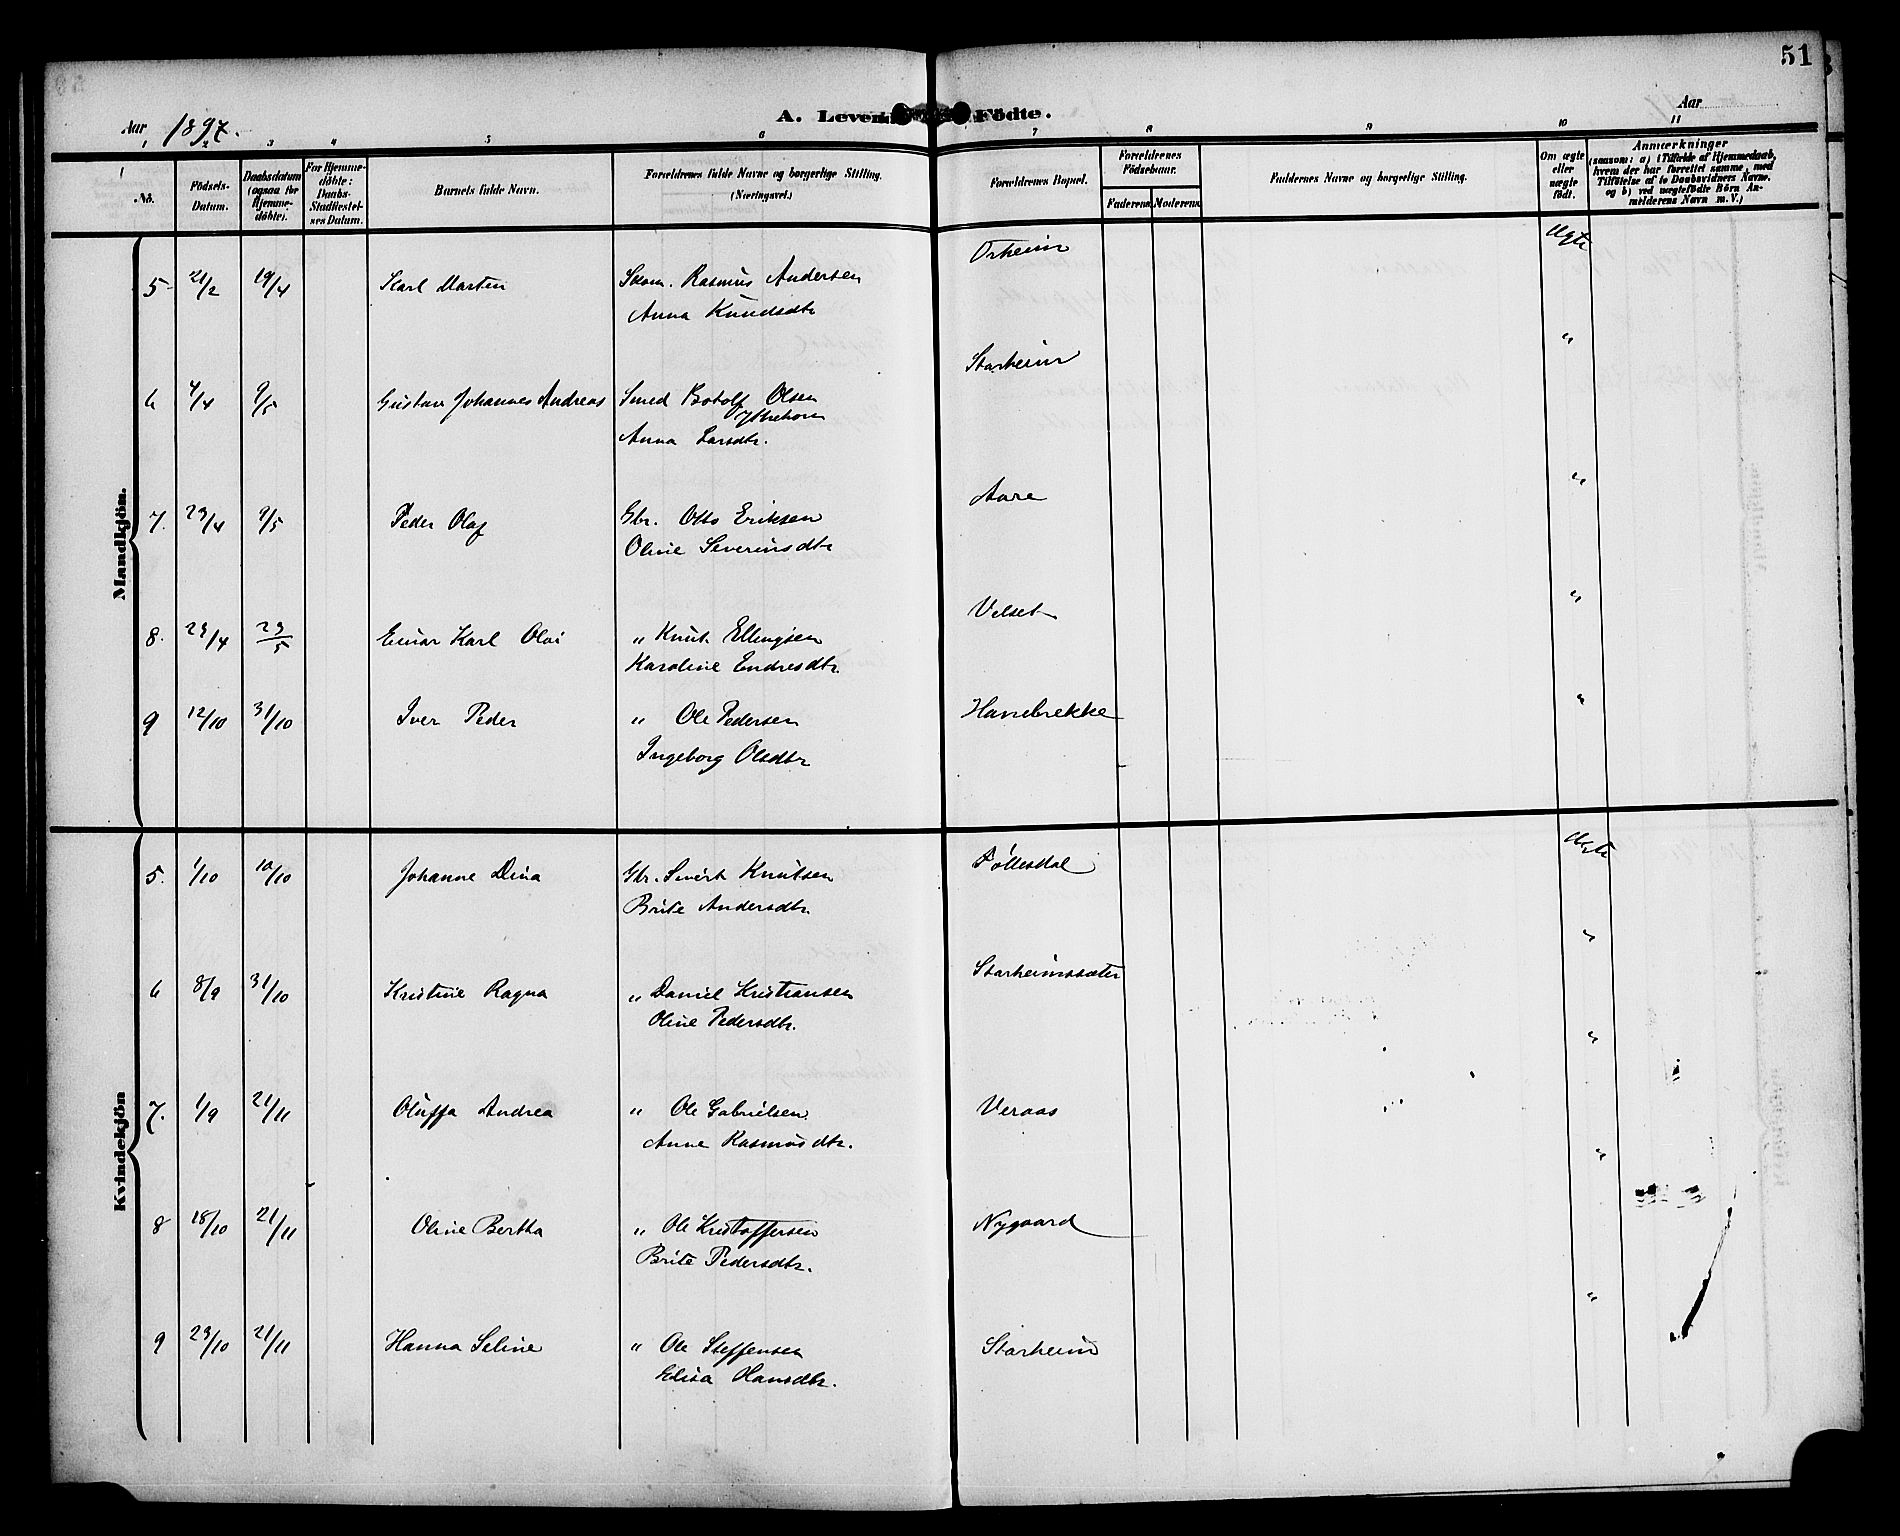 51
A. Levende Födte.
Aar 1897.
Aar
1 2 3 4 5 6 7 8 9 10 11
No.
Födsels-Datum.
Daabsdatum (ogsaa for Hjemme-döbte).
For Hjemme-döbte: Daabs-Stadfæstel-ses Datum.
Barnets fulde Navn.
Forældrenes fulde Navne og borgerlige Stilling. (Næringsvei.)
Forældrenes Bopæl.
Forældrenes Födselsaar.
Faderens. Moderens.
Faddernes Navne og borgerlige Stilling.
Om ægte eller uægte födt.
Anmærkninger (saasom: a) i Tilfælde af Hjemmedaab, hvem der har forrettet samme, med Tilföielse af to Daabsvidners Navne, og b) ved uægtefödte Börn An-melderens Navn m. V.)
Mandkjön.
5 21/2 19/4 Karl Marten Skom. Rasmus Andersen Orheim ægte
Anna Knudsdtr
6 4/4 9/5 Gustav Johannes Andreas Smed Botolf Olsen Starheim "
Ytrehorn
Anna Larsdtr.
7. 23/4 9/5 Peder Olaf Gbr. Otto Eriksen Aare "
Oline Severinsdtr
8. 23/4 23/5 Einar Karl Olai " Knut Ellingsen Velset "
Karoline Endresdtr.
9 12/10 31/10 Iver Peder " Ole Pedersen Hanebrekke "
Ingeborg Olsdtr
Kvindekjön
5. 1/10 10/10 Johanne Dina Gbr. Sivert Knutsen ægte
Brite Andersdtr.
6 8/9 31/10 Kristine Ragna " Daniel Kristiansen Starheimssæter "
Oline Pedersdtr.
7. 1/9 21/11 Oluffa Andrea " Ole Gabrielsen Veraas "
Anne Rasmusdtr.
8 18/10 21/11 Oline Bertha " Ole Kristoffersen Nygaard "
Brite Pedersdtr.
9 23/10 21/11 Hanna Seline " Ole Steffensen Starheim "
Elisa Hansdtr.